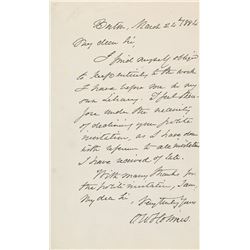 Boston, March 24th 1884
My dear Sir,
I find myself obliged
to keep entirely to the work
I have before me in my
own Library. I feel there
fore under the necessity
of declining your polite
invitation, as I have done
with reference to all invitations
I have received of late.
With many thanks for
the polite invitation, I am
My dear Sir,
Very truly Yours
O W Holmes.